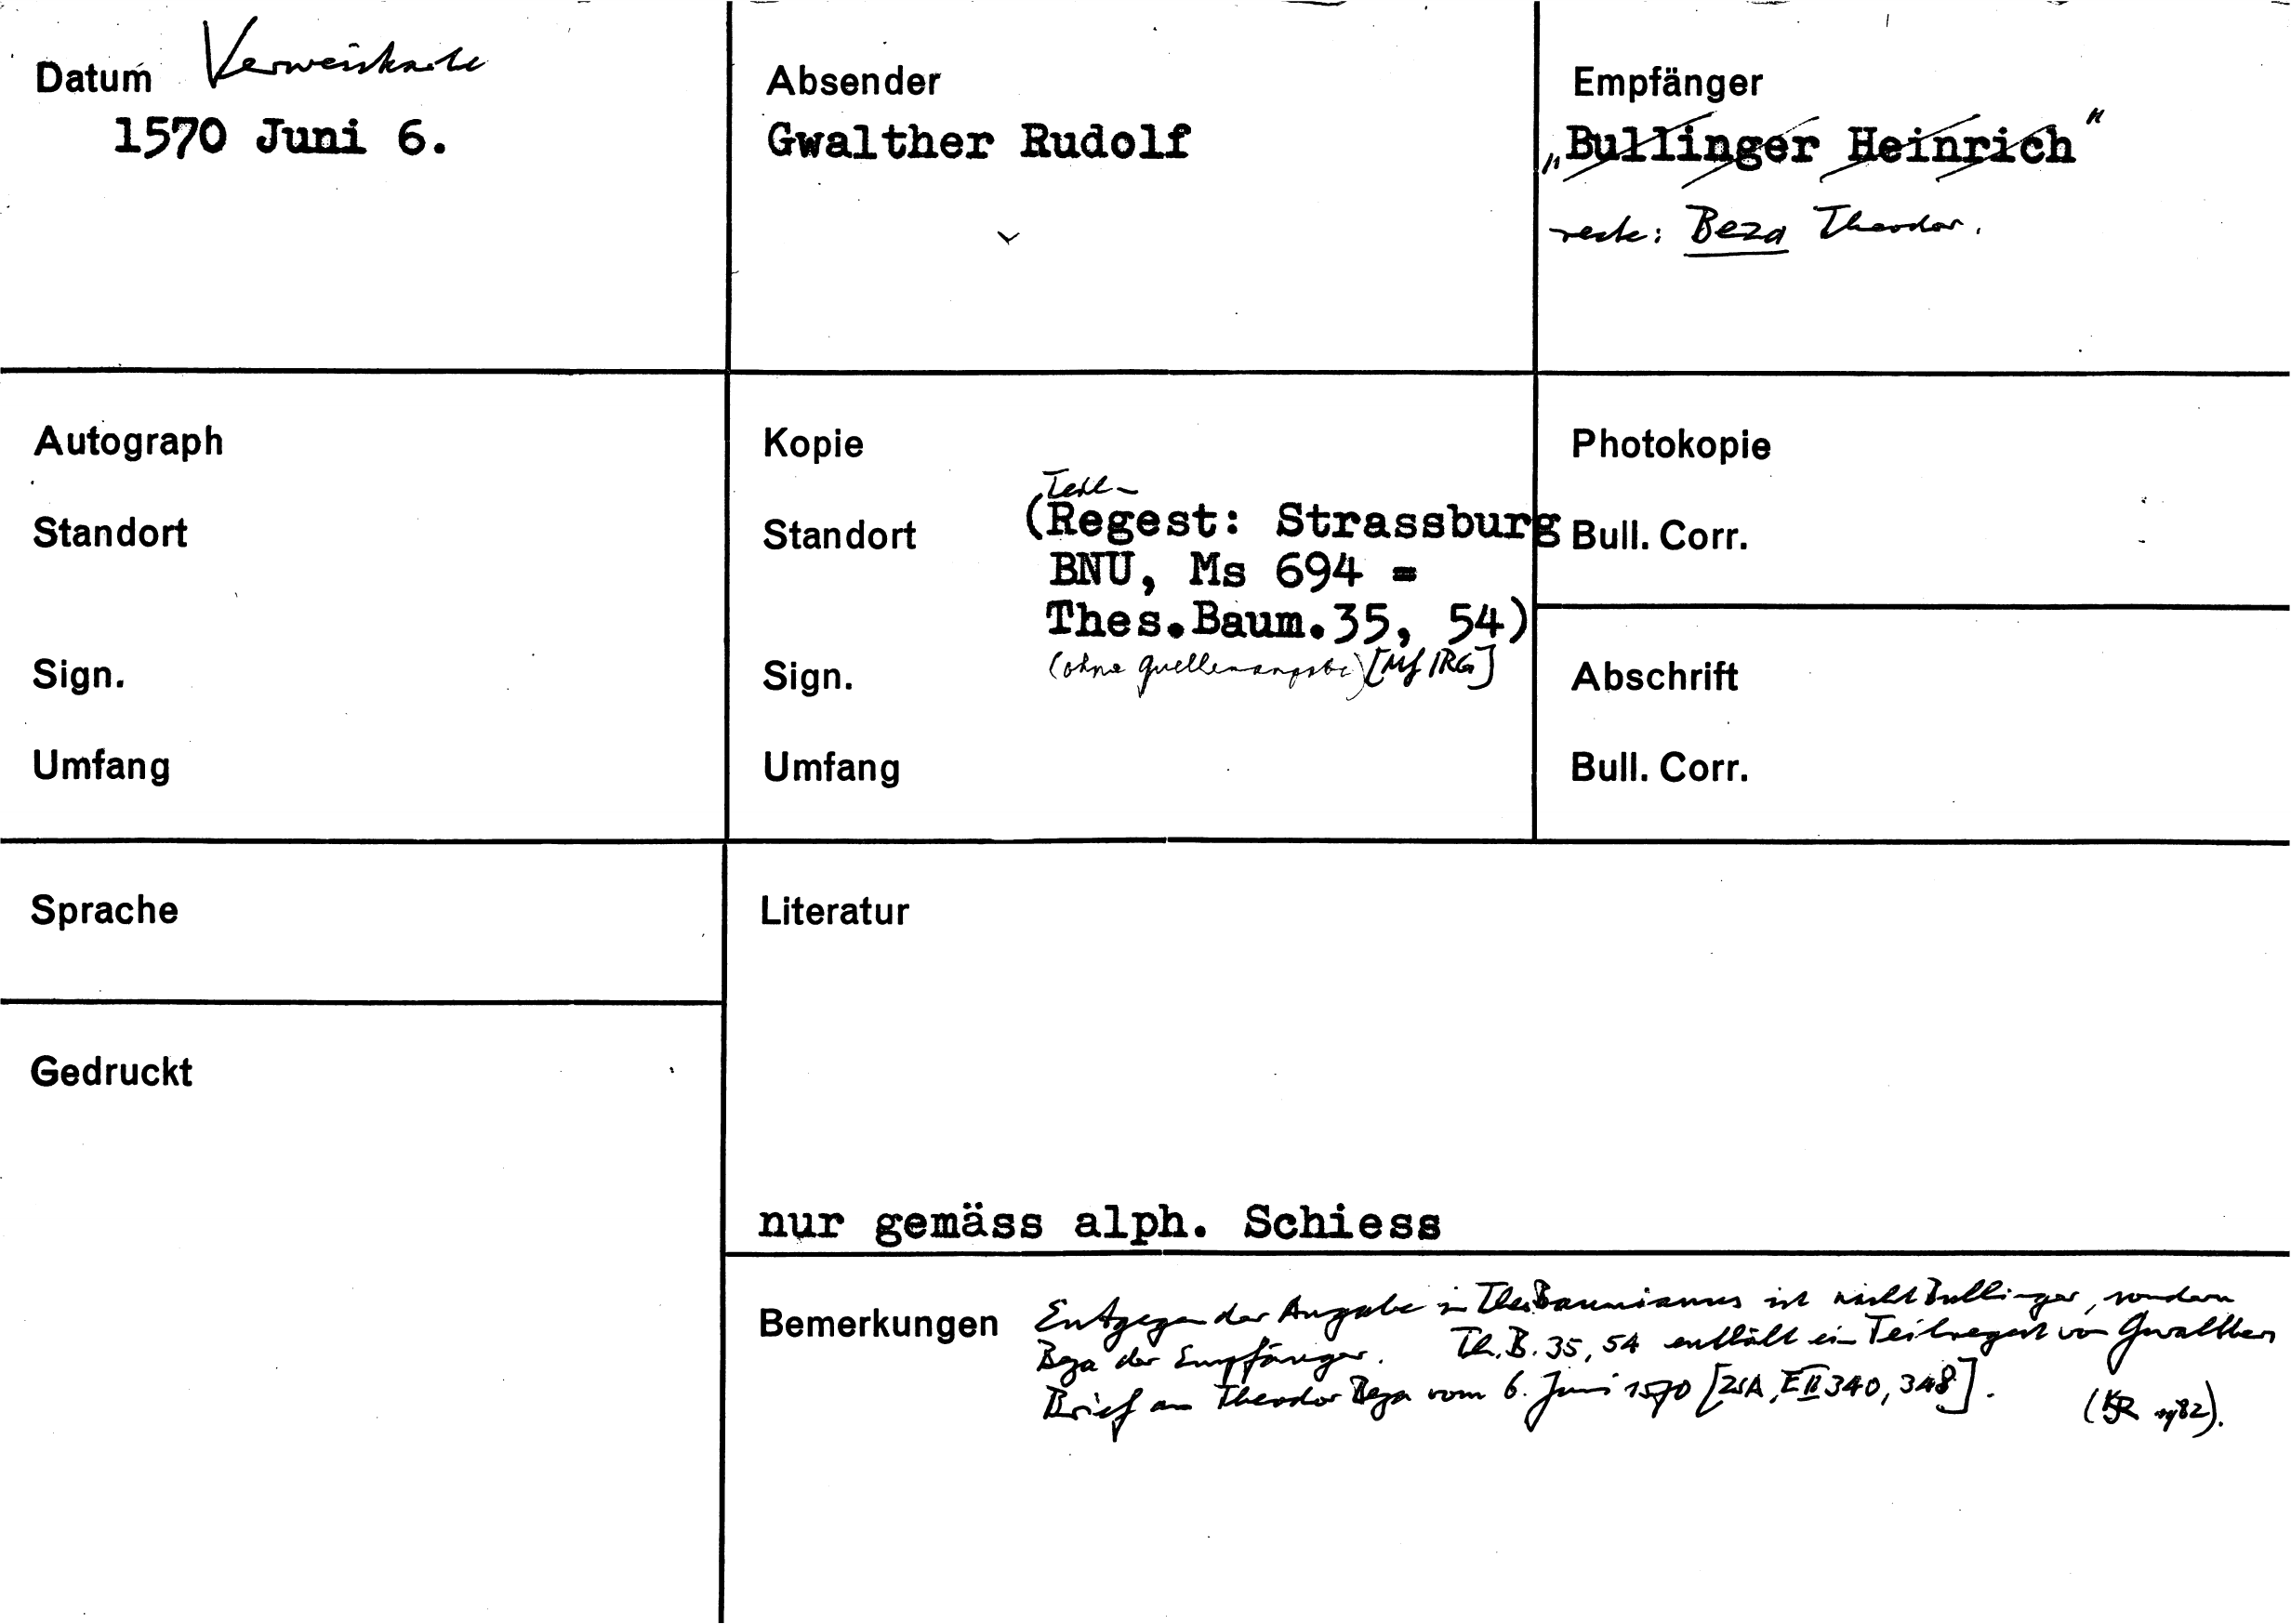 Datum Verweiskarte
1570 Juni 6.
Absender
Gwalther Rudolf
Empfänger
„Bullinger Heinrich"
recte: Beza Theodor.
Autograph
Standort
Sign.
Umfang
Kopie
Teil-
Standort (Regest: Strassburg
BNU, Ms 694 =
Thes.Baum.35, 54)
Sign. (ohne Quellenangabe) [Mf IRG]
Umfang
Photokopie
Bull. Corr.
Abschrift
Bull. Corr.
Sprache
Gedruckt
Literatur
nur gemäss alph. Schiess
Bemerkungen Entgegen der Angabe in Thes. Baumianus ist nicht Bullinger, sondern
Beza der Empfänger. Th. B. 35, 54 enthält ein Teilregest von Gwalthers
Brief an Theodor Beza vom 6. Juni 1570 [ZSA, E II 340, 348].